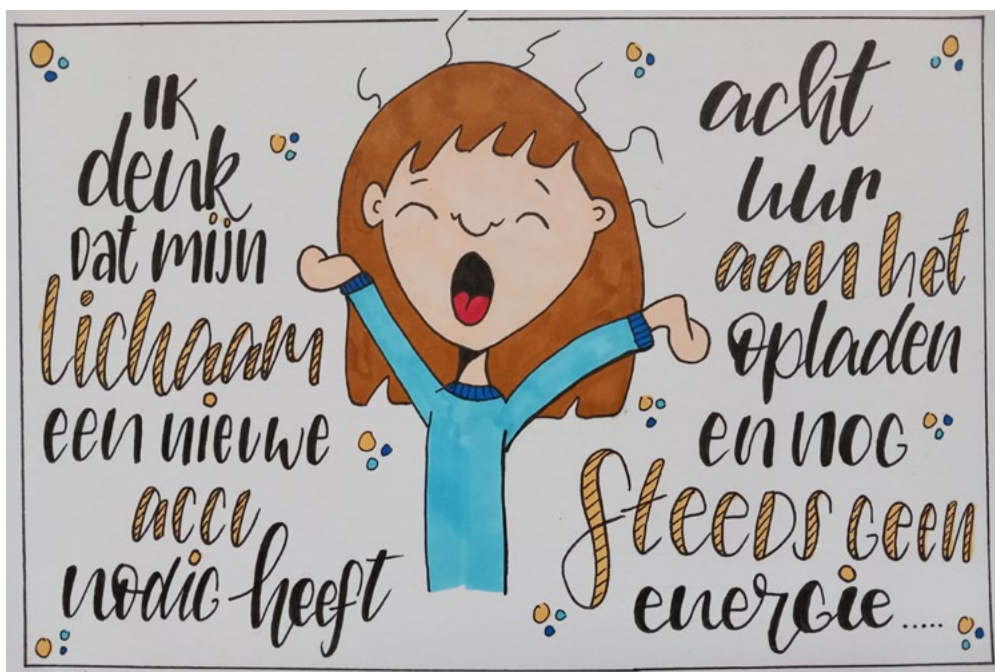 IK
denk
dat mijn
lichaam
een nieuwe
accu
nodig heeft
acht
uur
aan het
opladen
en nog
steeds geen
energie.....